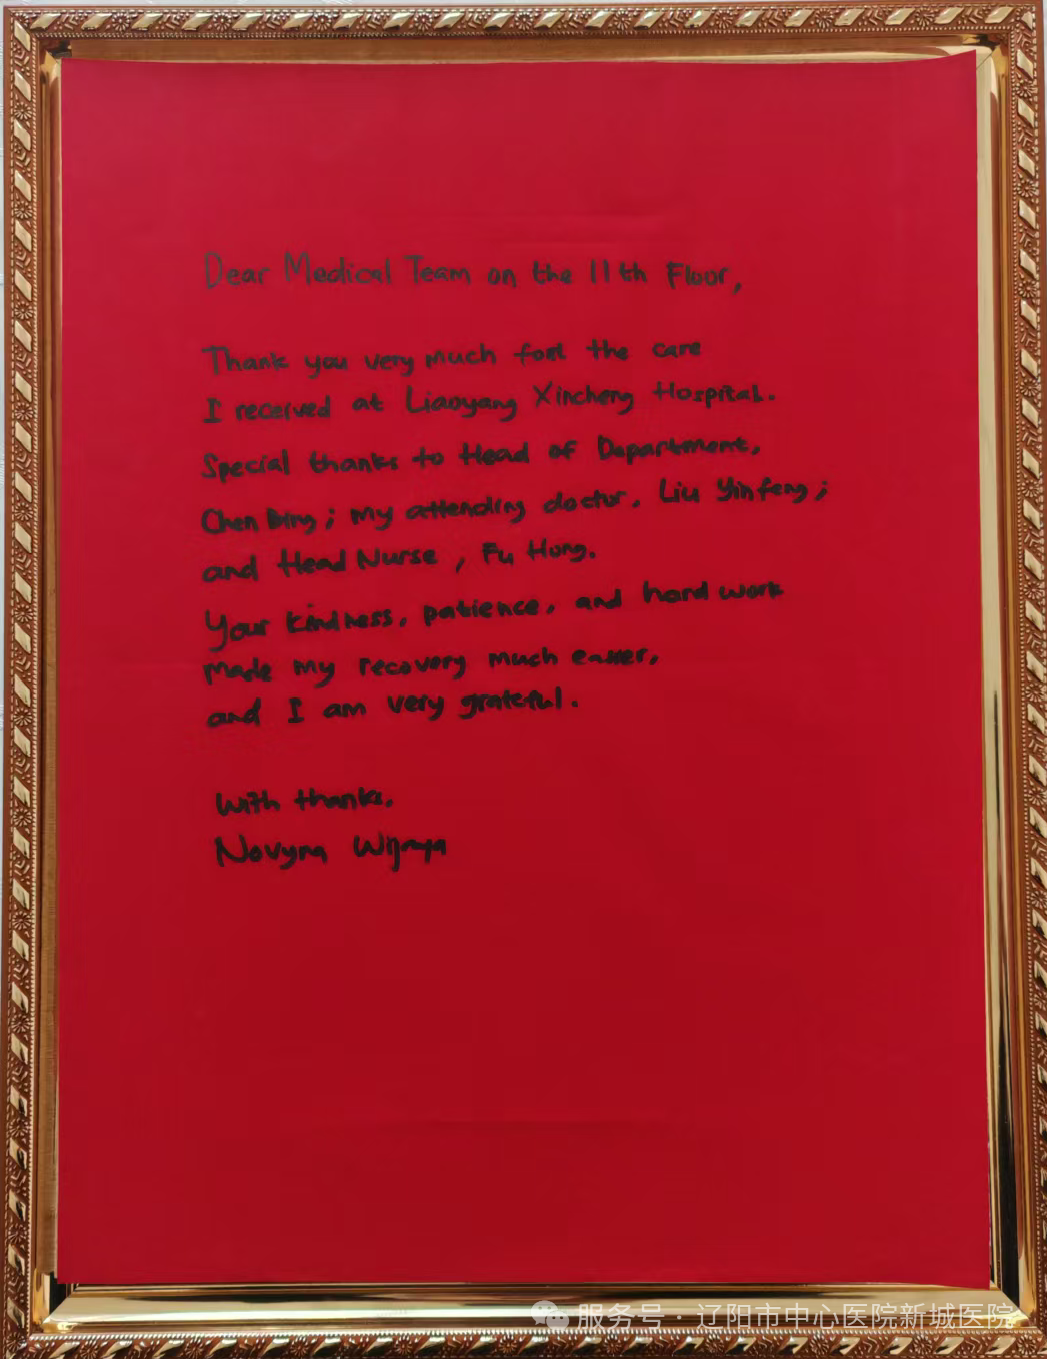 Dear Medical Team on the 11th Floor,
Thank you very much for the care
I received at Liaoyang Xincheng Hospital.
Special thanks to Head of Department,
Chen Bing; my attending doctor, Liu Yinfeng;
and Head Nurse, Fu Hong.
Your kindness, patience, and hard work
made my recovery much easier,
and I am very grateful.
With thanks,
Novyna Wijaya
服务号 · 辽阳市中心医院新城医院